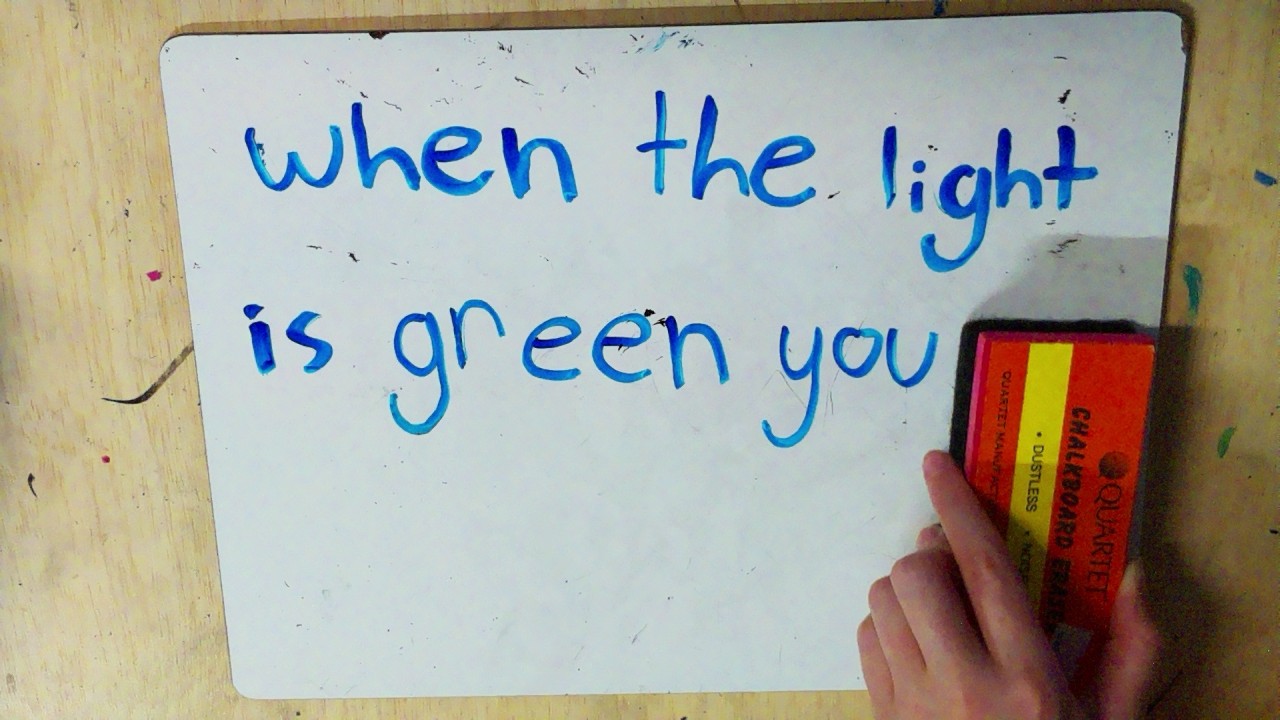 when the light
is green you
QUARTET
CHALKBOARD ERASE
• DUSTLESS •
QUARTET